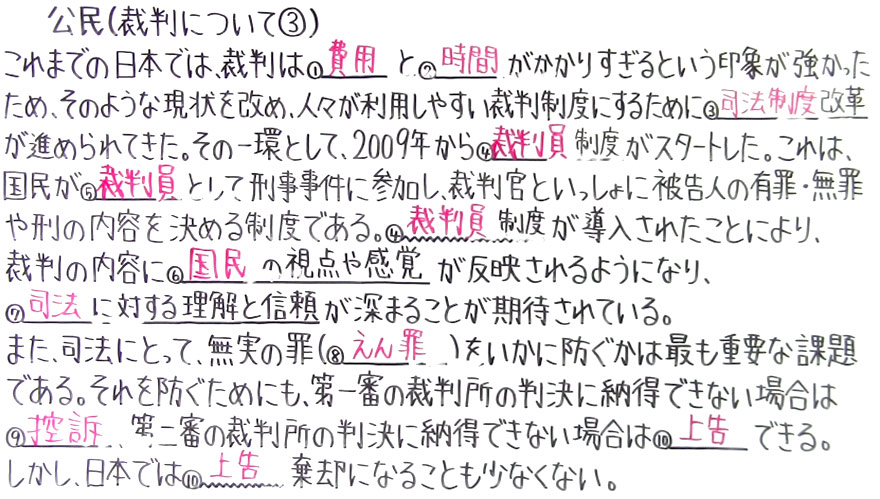 公民(裁判について③)
これまでの日本では、裁判は①費用と②時間がかかりすぎるという印象が強かった
ため、そのような現状を改め、人々が利用しやすい裁判制度にするために③司法制度改革
が進められてきた。その一環として、2009年から④裁判員制度がスタートした。これは、
国民が⑤裁判員として刑事事件に参加し、裁判官といっしょに被告人の有罪・無罪
や刑の内容を決める制度である。④裁判員制度が導入されたことにより、
裁判の内容に⑥国民の視点や感覚が反映されるようになり、
⑦司法に対する理解と信頼が深まることが期待されている。
また、司法にとって、無実の罪(⑧えん罪)をいかに防ぐかは最も重要な課題
である。それを防ぐためにも、第一審の裁判所の判決に納得できない場合は
⑨控訴、第二審の裁判所の判決に納得できない場合は⑩上告できる。
しかし、日本では⑩上告棄却になることも少なくない。